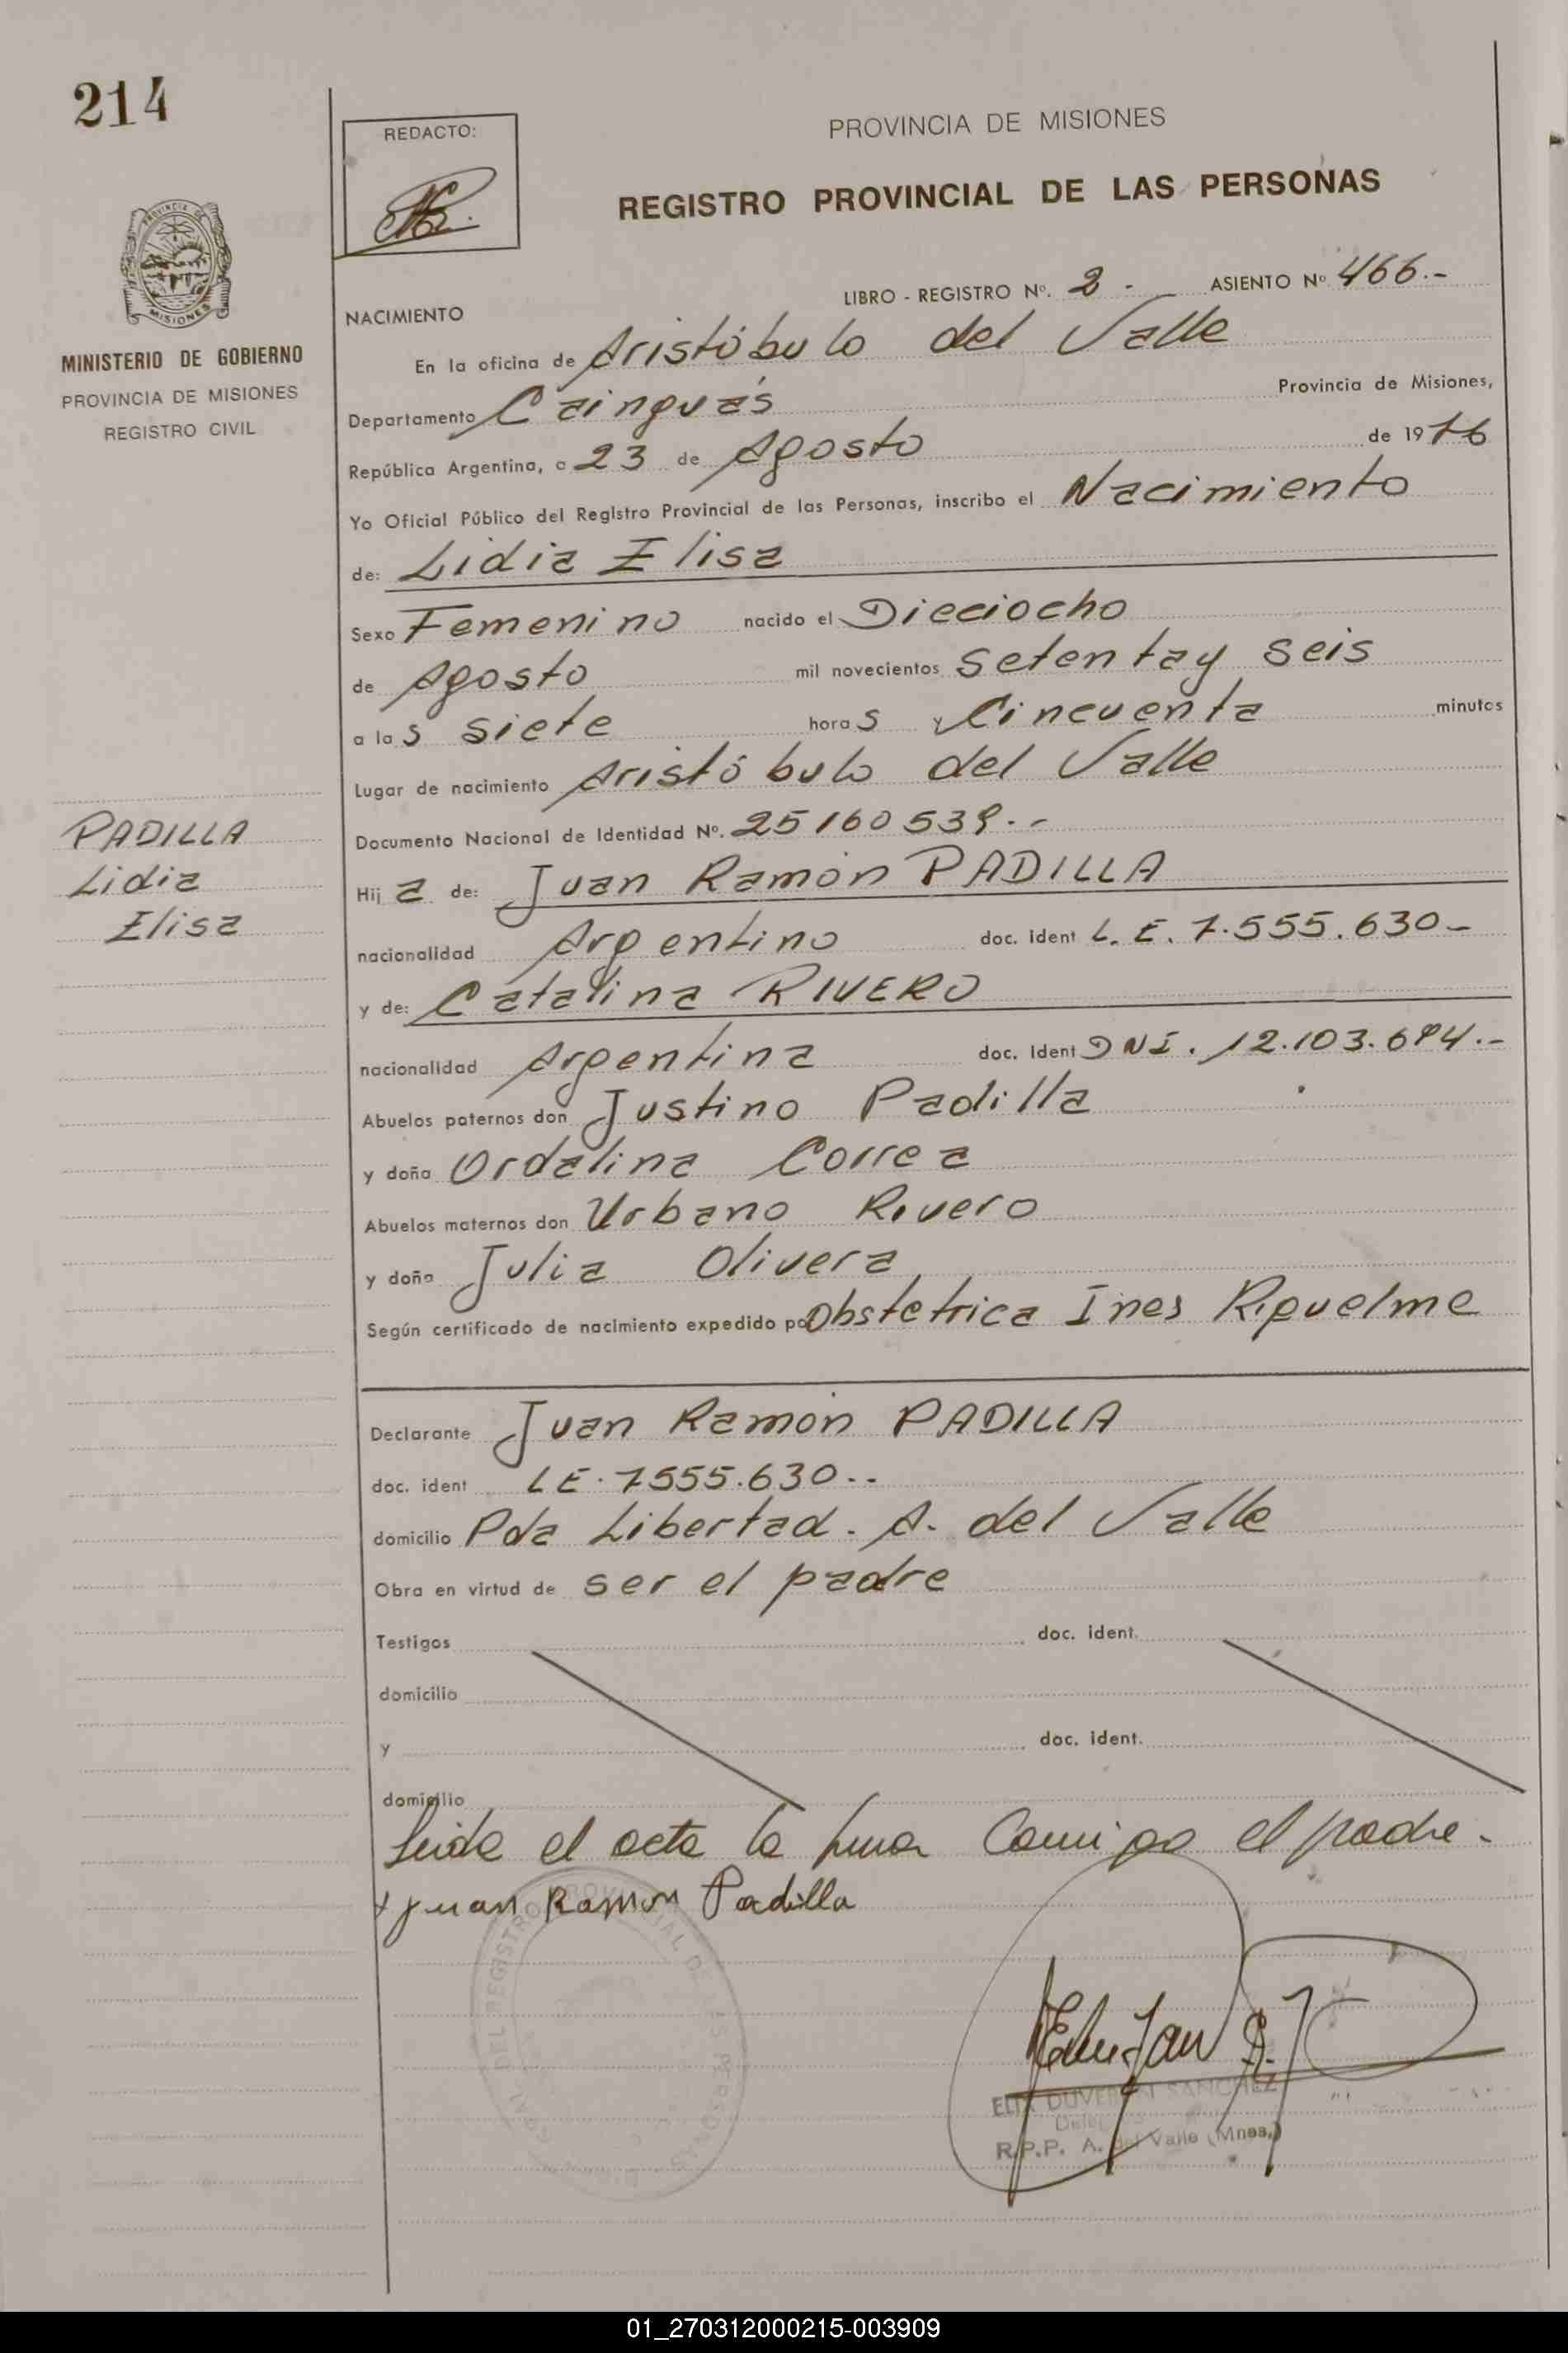 214
REDACTO:
PROVINCIA DE MISIONES
REGISTRO PROVINCIAL DE LAS PERSONAS
PROVINCIA DE
MISIONES
MINISTERIO DE GOBIERNO
PROVINCIA DE MISIONES
REGISTRO CIVIL
LIBRO - REGISTRO Nº. 2 - ASIENTO Nº 466.-
NACIMIENTO
En la oficina de Aristóbulo del Valle
Departamento Cainguás Provincia de Misiones,
República Argentina, a 23 de Agosto de 1976
Yo Oficial Público del Registro Provincial de las Personas, inscribo el Nacimiento
de: Lidia Elisa
Sexo Femenino nacido el Dieciocho
de Agosto mil novecientos setenta y seis
a las siete horas y Cincuenta minutos
Lugar de nacimiento Aristóbulo del Valle
Documento Nacional de Identidad Nº. 25160539.--
PADILLA
Lidia
Elisa
Hija de: Juan Ramón PADILLA
nacionalidad Argentino doc. ident L. E. 7.555.630-
y de: Catalina RIVERO
nacionalidad Argentina doc. Ident DNI. 12.103.694.--
Abuelos paternos don Justino Padilla
y doña Ordalina Correa
Abuelos maternos don Urbano Rivero
y doña Julia Olivera
Según certificado de nacimiento expedido po Obstetrica Ines Riquelme
Declarante Juan Ramón PADILLA
doc. ident LE. 7555.630.--
domicilio Pda Libertad. A. del Valle
Obra en virtud de ser el padre
Testigos doc. ident.
domicilio
y doc. ident.
domicilio
Leida el acta la firma Conmigo el padre.-
x Juan Ramon Padilla
DEL REGISTRO PROVINCIAL DE LAS PERSONAS
SANCHEZ
R.P.P. A. del Valle (Mnes.)
01_270312000215-003909